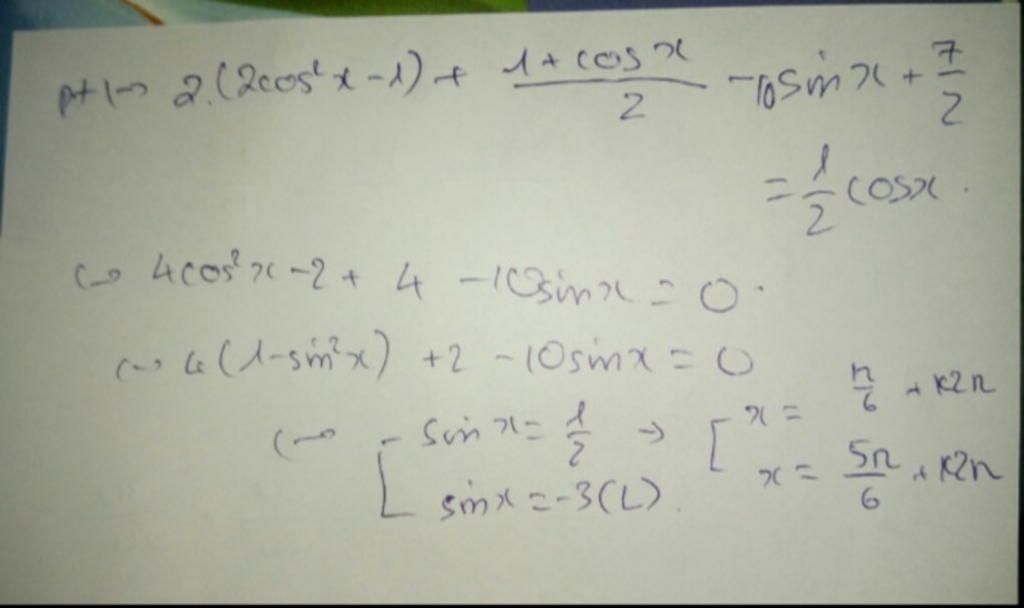 pt ↔ 2.(2cos²x - 1) + (1 + cos x)/2 - 10sin x + 7/2
= 1/2 cosx.
↔ 4cos²x - 2 + 4 - 10sinx = 0.
↔ 4(1 - sin²x) + 2 - 10sinx = 0
↔ [ sin x = 1/2 → [ x = π/6 + k2π
sinx = -3(L). x = 5π/6 + k2π